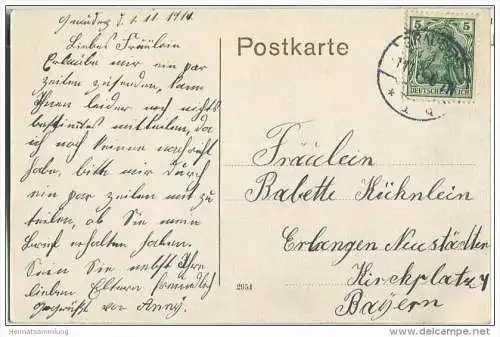 1.11.1911
Liebes Fräulein
Erlaube mir ein par
zeilen zusenden, kann
Ihnen leider noch nichts
bestimtes mitteilen, da
ich noch keine nachricht
habe, bitte mir durch
ein par zeilen mit zu
teilen, ob Sie mein
Brief erhalten haben.
Seien Sie nebst Ihre
lieben Eltern freundlich
Gegrüßt von Anny.
Postkarte
5 5
DEUTSCHES REICH
Fräulein
Babette Kühnlein
Erlangen Neustädter
Kirchplatz
Bayern
2951
Heimatsammlung
www.delcampe.net